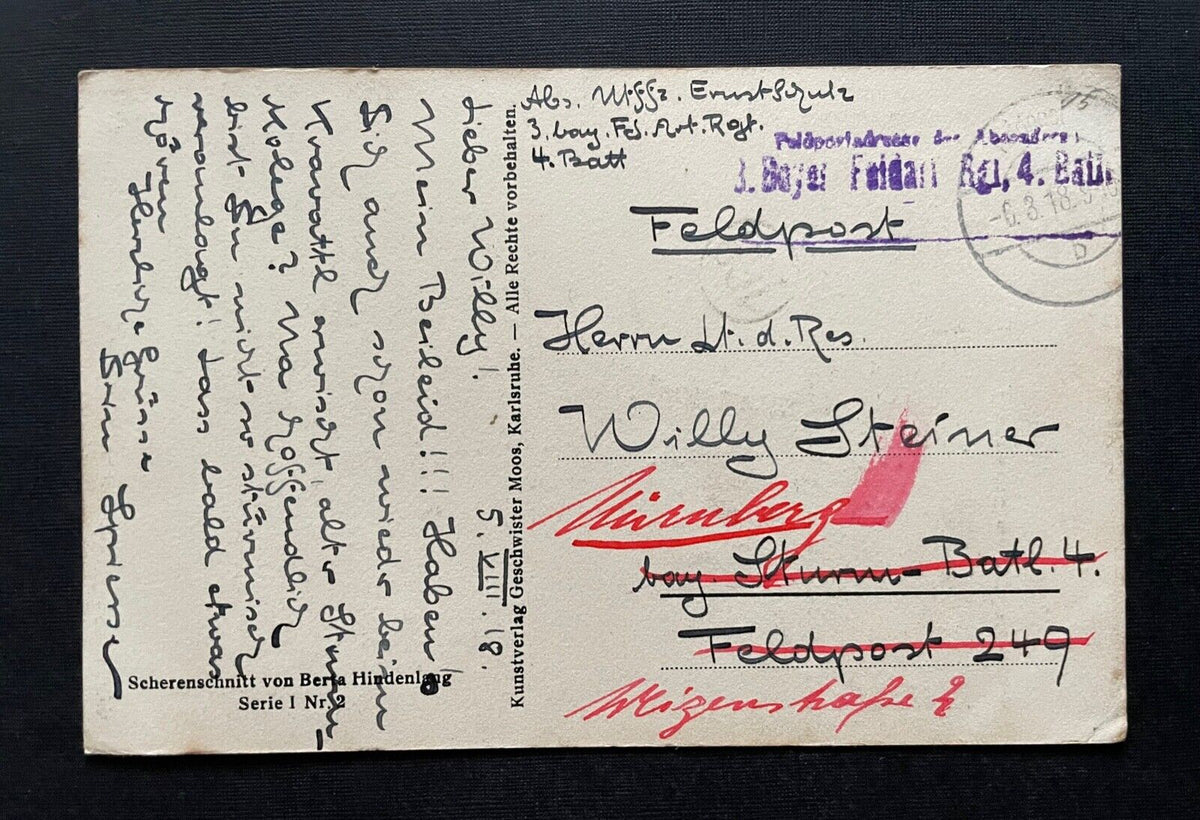 Abs. Uffz. Ernst Schulz
3. bay. Fd. Art. Rgt.
4. Batt
Feldpostadresse des Absenders:
3. Bayer Feldart Rgt, 4. Batt.
-6.3.18.
b
Feldpost
Herrn Lt. d. Res.
Willy Steiner
Nürnberg
bay Sturm-Batl. 4.
Feldpost 249
2
5. VIII. 18.
Lieber Willy!
Mein Beileid!!! Haben
Dich auch schon wieder beim
Krawattl erwischt, alter Sturm-
kolege? Na hoffendlich
bist Du nicht so stürmisch
veranlagt! Lass bald etwas
hören
Herzliche Grüsse
Kunstverlag Geschwister Moos, Karlsruhe. — Alle Rechte vorbehalten.
Scherenschnitt von Berta Hindenlang
Serie I Nr. 2